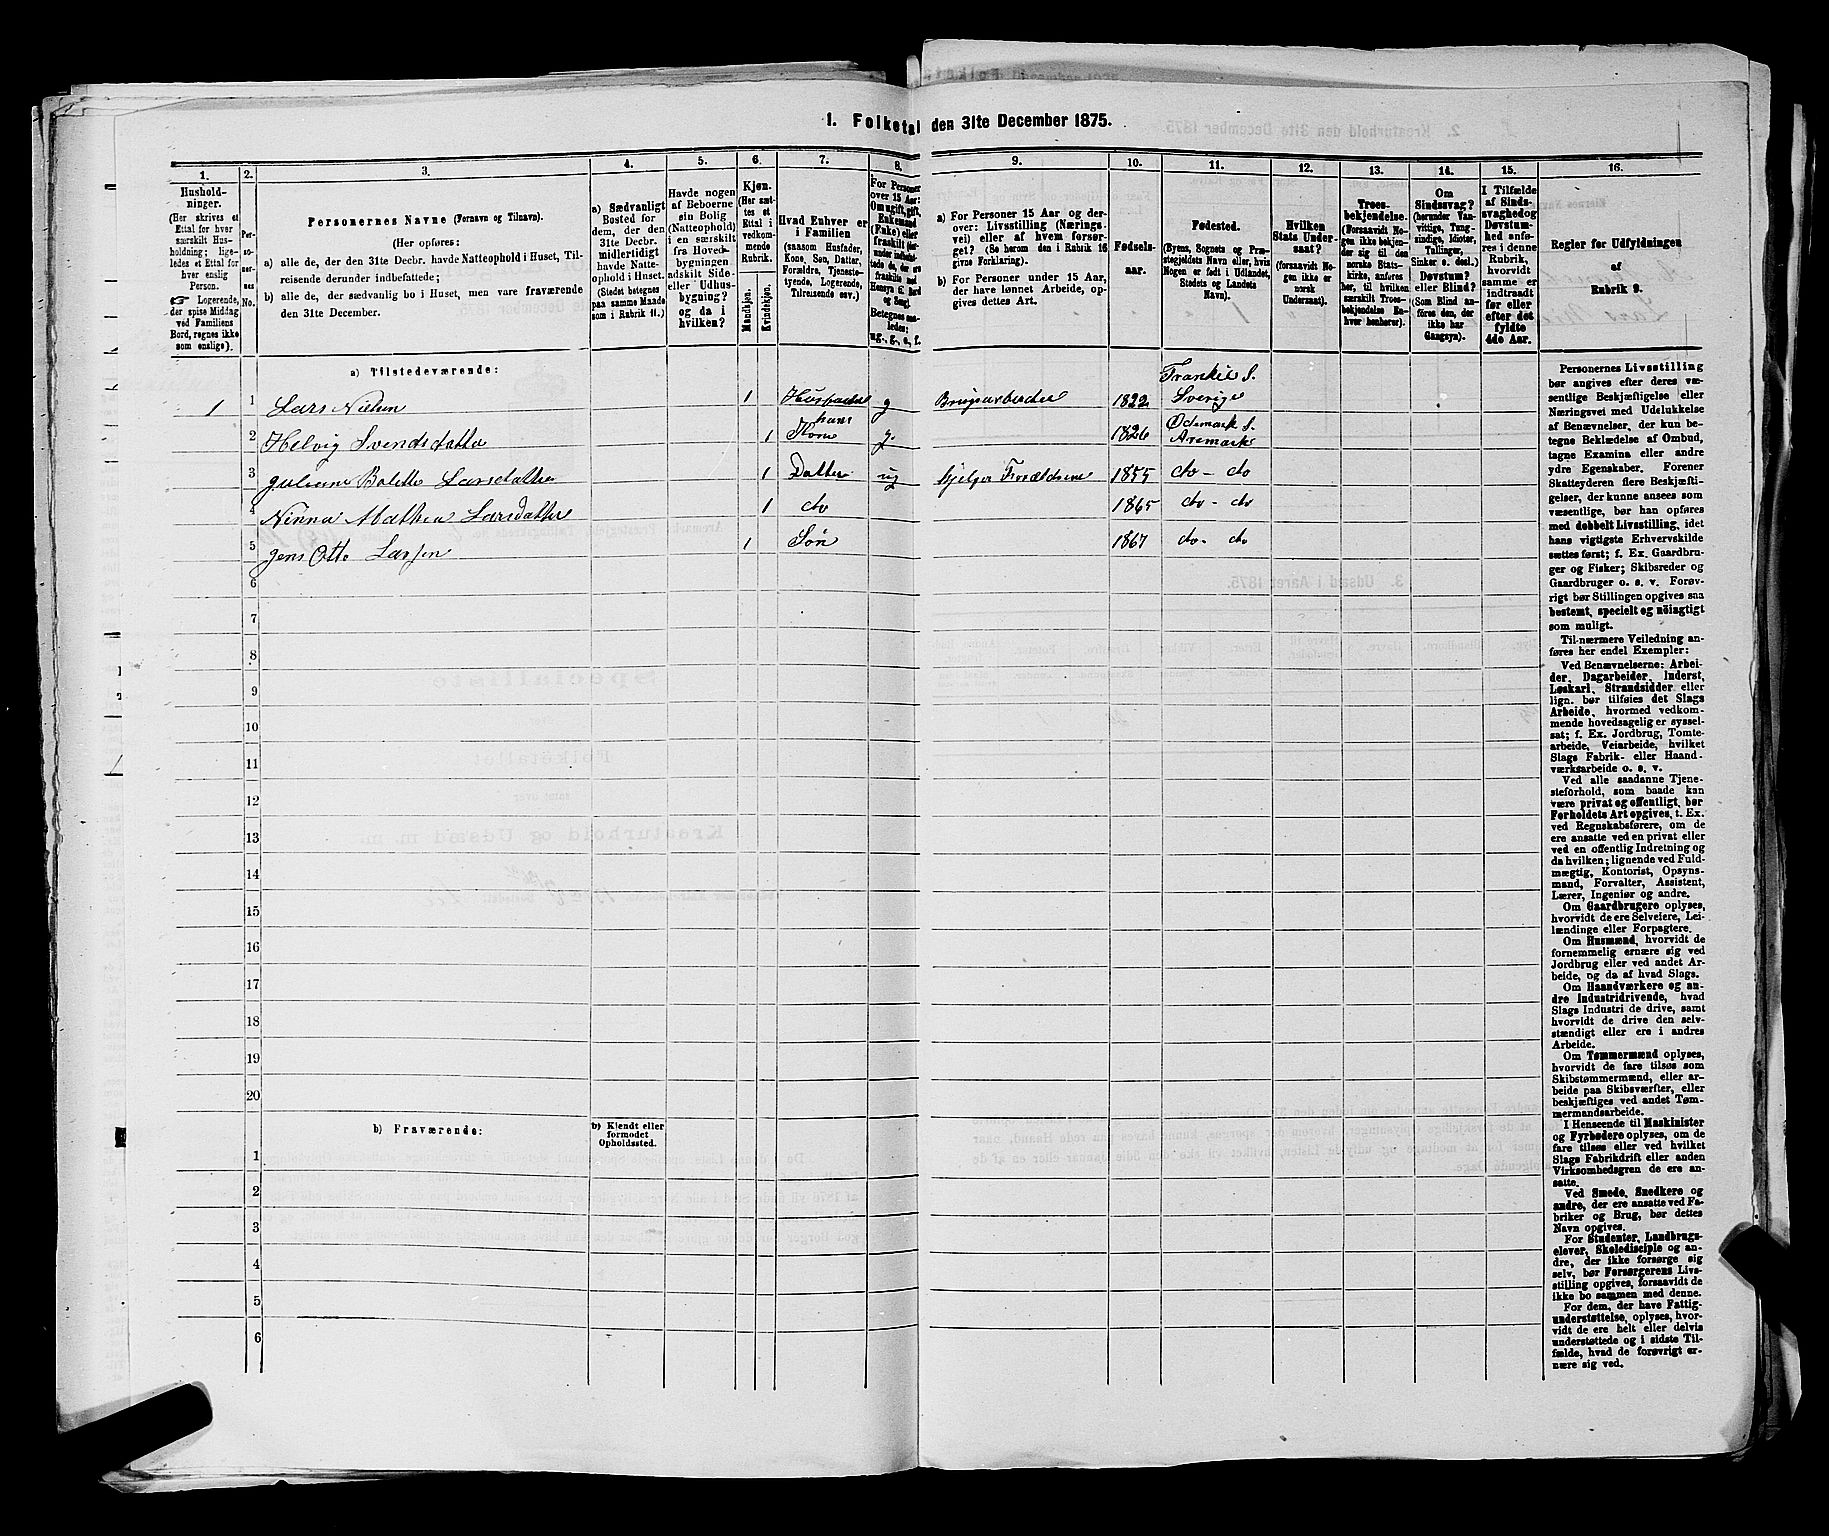 1. Folketal den 31te December 1875.
1.
2.
3.
4.
5.
6.
7.
8.
9.
10.
11.
12.
13.
14.
15.
16.
Hushold-
ninger.
(Her skrives et
Ettal for hver
særskilt Hus-
holdning; lige-
ledes et Ettal for
hver enslig
Person.
☞ Logerende,
der spise Middag
ved Familiens
Bord, regnes ikke
som enslige).
Per-
so-
ner-
nes
No.
Personernes Navne (Fornavn og Tilnavn).
(Her opføres:
a) alle de, der den 31te Decbr. havde Natteophold i Huset, Til-
reisende derunder indbefattede;
b) alle de, der sædvanlig bo i Huset, men vare fraværende
den 31te December.
a) Sædvanligt
Bosted for
dem, der den
31te Decbr.
midlertidigt
havde Natte-
ophold i Huset.
(Stedet betegnes
paa samme Maade
som i Rubrik 11.)
Havde nogen
af Beboerne
sin Bolig
(Natteophold)
i en særskilt
fra Hoved-
bygningen
adskilt Side-
eller Udhus-
bygning?
og da i
hvilken?
Kjøn.
(Her sæt-
tes et
Ettal i
vedkom-
mende
Rubrik.
Mandkjøn.
Kvindekjøn.
Hvad Enhver er
i Familien
(saasom Husfader,
Kone, Søn, Datter,
Forældre, Tjeneste-
tyende, Logerende,
Tilreisende osv.)
For Personer
over 15 Aar:
Om ugift, gift,
Enkemand
(Enke) eller
fraskilt
Betegnes
saaledes:
ug., g., e., f.
a) For Personer 15 Aar og der-
over: Livsstilling (Nærings-
vei) eller af hvem forsør-
get? (Se herom den i Rubrik 16
givne Forklaring).
b) For Personer under 15 Aar,
der have lønnet Arbeide, op-
gives dettes Art.
Fødsels-
aar.
Fødested.
(Byens, Sognets og Præ-
stegjeldets Navn eller, hvis
Nogen er født i Udlandet,
Stedets og Landets
Navn).
Hvilken
Stats Under-
saat?
(forsaavidt No-
gen ikke er
norsk
Undersaat).
Troes-
bekjendelse.
(Forsaavidt No-
gen ikke bekjen-
der sig til den
norske Stats-
kirke, anføres
her, til hvilken
særskilt Troes-
bekjendelse En-
hver henhører).
Om
Sindssvag?
(herunder Van-
vittige, Tung-
sindige, Idioter,
Tullinger,
Sinker o. desl.)
Døvstum?
eller Blind?
(Som Blind an-
føres den, der
ikke har
Gangsyn).
I Tilfælde
af Sinds-
svaghed og
Døvstum-
hed anfø-
res i denne
Rubrik,
hvorvidt
samme er
indtraadt
før eller
efter det
fyldte
4de Aar.
Regler for Udfyldningen
af
Rubrik 9.
a) Tilstedeværende:
1 1 Lars Nielsen 1 Husfader g Brugsarbeider 1822 Trankil S. Sverige
2 Helvig Svendsdatter 1 hans Kone g. 1826 Ødemark S. Aremark
3 Juliane Bolette Larsdatter 1 Datter ug hjelper Forældrene 1855 do - do
4 Ninna Mathea Larsdatter 1 do 1865 do - do
5 Jens Otto Larsen 1 Søn 1867 do - do
6
7
8
9
10
11
12
13
14
15
16
17
18
19
20
b) Fraværende:
b) Kjendt eller
formodet
Opholdssted.
1
2
3
4
5
6
Personernes Livsstilling
bør angives efter deres væ-
sentlige Beskjæftigelse eller
Næringsvei med Udelukkelse
af Benævnelser, der kun be-
tegne Beklædelse af Ombud,
tagne Examina eller andre
ydre Egenskaber. Forener
Skatteyderen flere Beskjæfti-
gelser, der kunne ansees som
væsentlige, bør han opføres
med dobbelt Livsstilling, idet
hans vigtigste Erhvervskilde
sættes først; f. Ex. Gaardbru-
ger og Fisker; Skibsreder og
Gaardbruger o. s. v. Forøv-
rigt bør Stillingen opgives saa
bestemt, specielt og nöiagtigt
som muligt.
Til nærmere Veiledning an-
føres her endel Exempler:
Ved Benævnelserne: Arbei-
der, Dagarbeider, Inderst,
Løskarl, Strandsidder eller
lign. bør tilføies det Slags
Arbeide, hvormed vedkom-
mende hovedsagelig er syssel-
sat; f. Ex. Jordbrug, Tomte-
arbeide, Veiarbeide, hvilket
Slags Fabrik- eller Haand-
værksarbeide o. s. v.
Ved alle saadanne Tjene-
steforhold, som baade kan
være privat og offentligt, bør
Forholdets Art opgives, t. Ex.
ved Regnskabsførere, om de
ere ansatte ved en privat eller
ved en offentlig Indretning og
da hvilken; lignende ved Fuld-
mægtig, Kontorist, Opsyns-
mand, Forvalter, Assistent,
Lærer, Ingeniør og andre.
Om Gaardbrugere oplyses,
hvorvidt de ere Selveiere, Lei-
lændinge eller Forpagtere.
Om Husmænd, hvorvidt de
fornemmelig ernære sig ved
Jordbrug eller ved andet Ar-
beide, og da af hvad Slags.
Om Haandværkere og an-
dre Industridrivende, hvad
Slags Industri de drive, samt
hvorvidt de drive den selv-
stændigt eller ere i andres
Arbeide.
Om Tømmermænd oplyses,
hvorvidt de fare tilsøs som
Skibstømmermænd, eller ar-
beide paa Skibsværfter, eller
beskjæftiges ved andet Tøm-
mermandsarbeide.
I Henseende til Maskinister
og Fyrbødere oplyses, om de
fare tilsøs eller ved hvilket
Slags Fabrikdrift eller anden
Virksomhedsgren de ere an-
satte.
Ved Smede, Snedkere og
andre, der ere ansatte ved Fa-
briker og Brug, bør dettes
Navn opgives.
For Studenter, Landbrugs-
elever, Skoledisciple og an-
dre, der ikke forsørge sig
selv, bør Forsørgerens Livs-
stilling opgives, forsaavidt de
ikke bo sammen med denne.
For dem, der have Fattig-
understøttelse, oplyses, hvor-
vidt de ere helt eller delvis
understøttede og i sidste Til-
fælde, hvad de forøvrigt er-
nære sig ved.